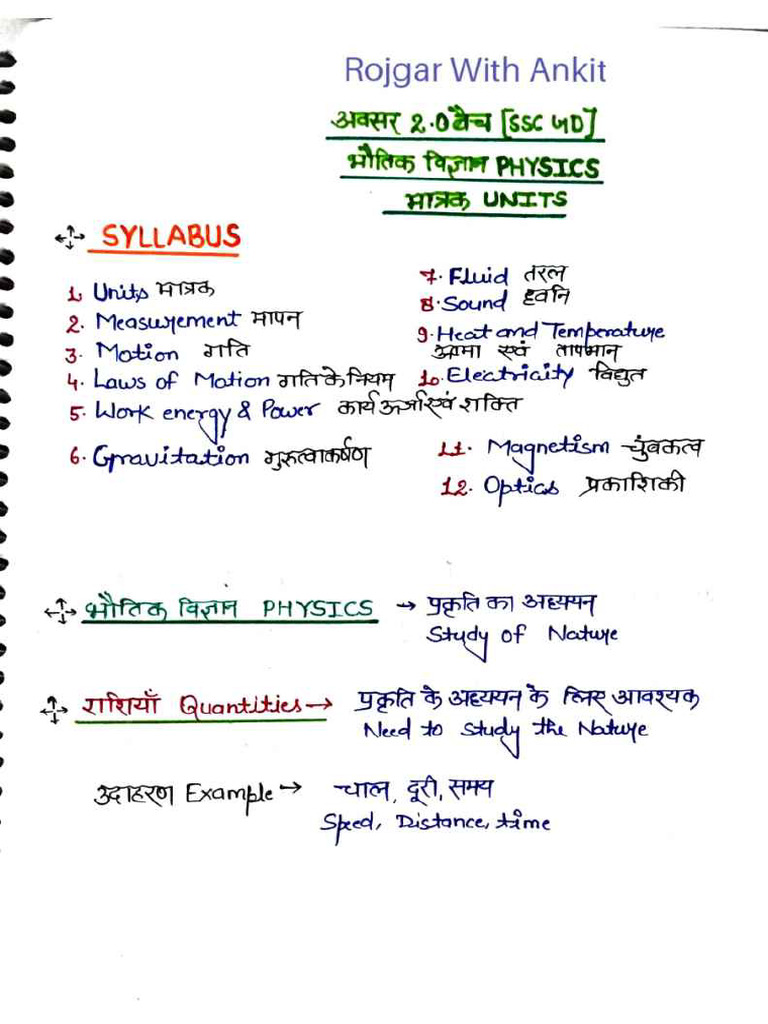 Rojgar With Ankit
अवसर 2.0 बैच [SSC GD]
भौतिक विज्ञान PHYSICS
मात्रक UNITS
SYLLABUS
1. Units मात्रक
2. Measurement मापन
3. Motion गति
4. Laws of Motion गति के नियम
5. Work energy & Power कार्य ऊर्जा एवं शक्ति
6. Gravitation गुरुत्वाकर्षण
7. Fluid तरल
8. Sound ध्वनि
9. Heat and Temperature
आमा एवं तापमान
10. Electricity विद्युत
11. Magnetism चुंबकत्व
12. Optics प्रकाशिकी
भौतिक विज्ञान PHYSICS → प्रकृति का अध्ययन
Study of Nature
राशियाँ Quantities → प्रकृति के अध्ययन के लिए आवश्यक
Need to study the Nature
उदाहरण Example → चाल, दूरी, समय
Speed, Distance, time